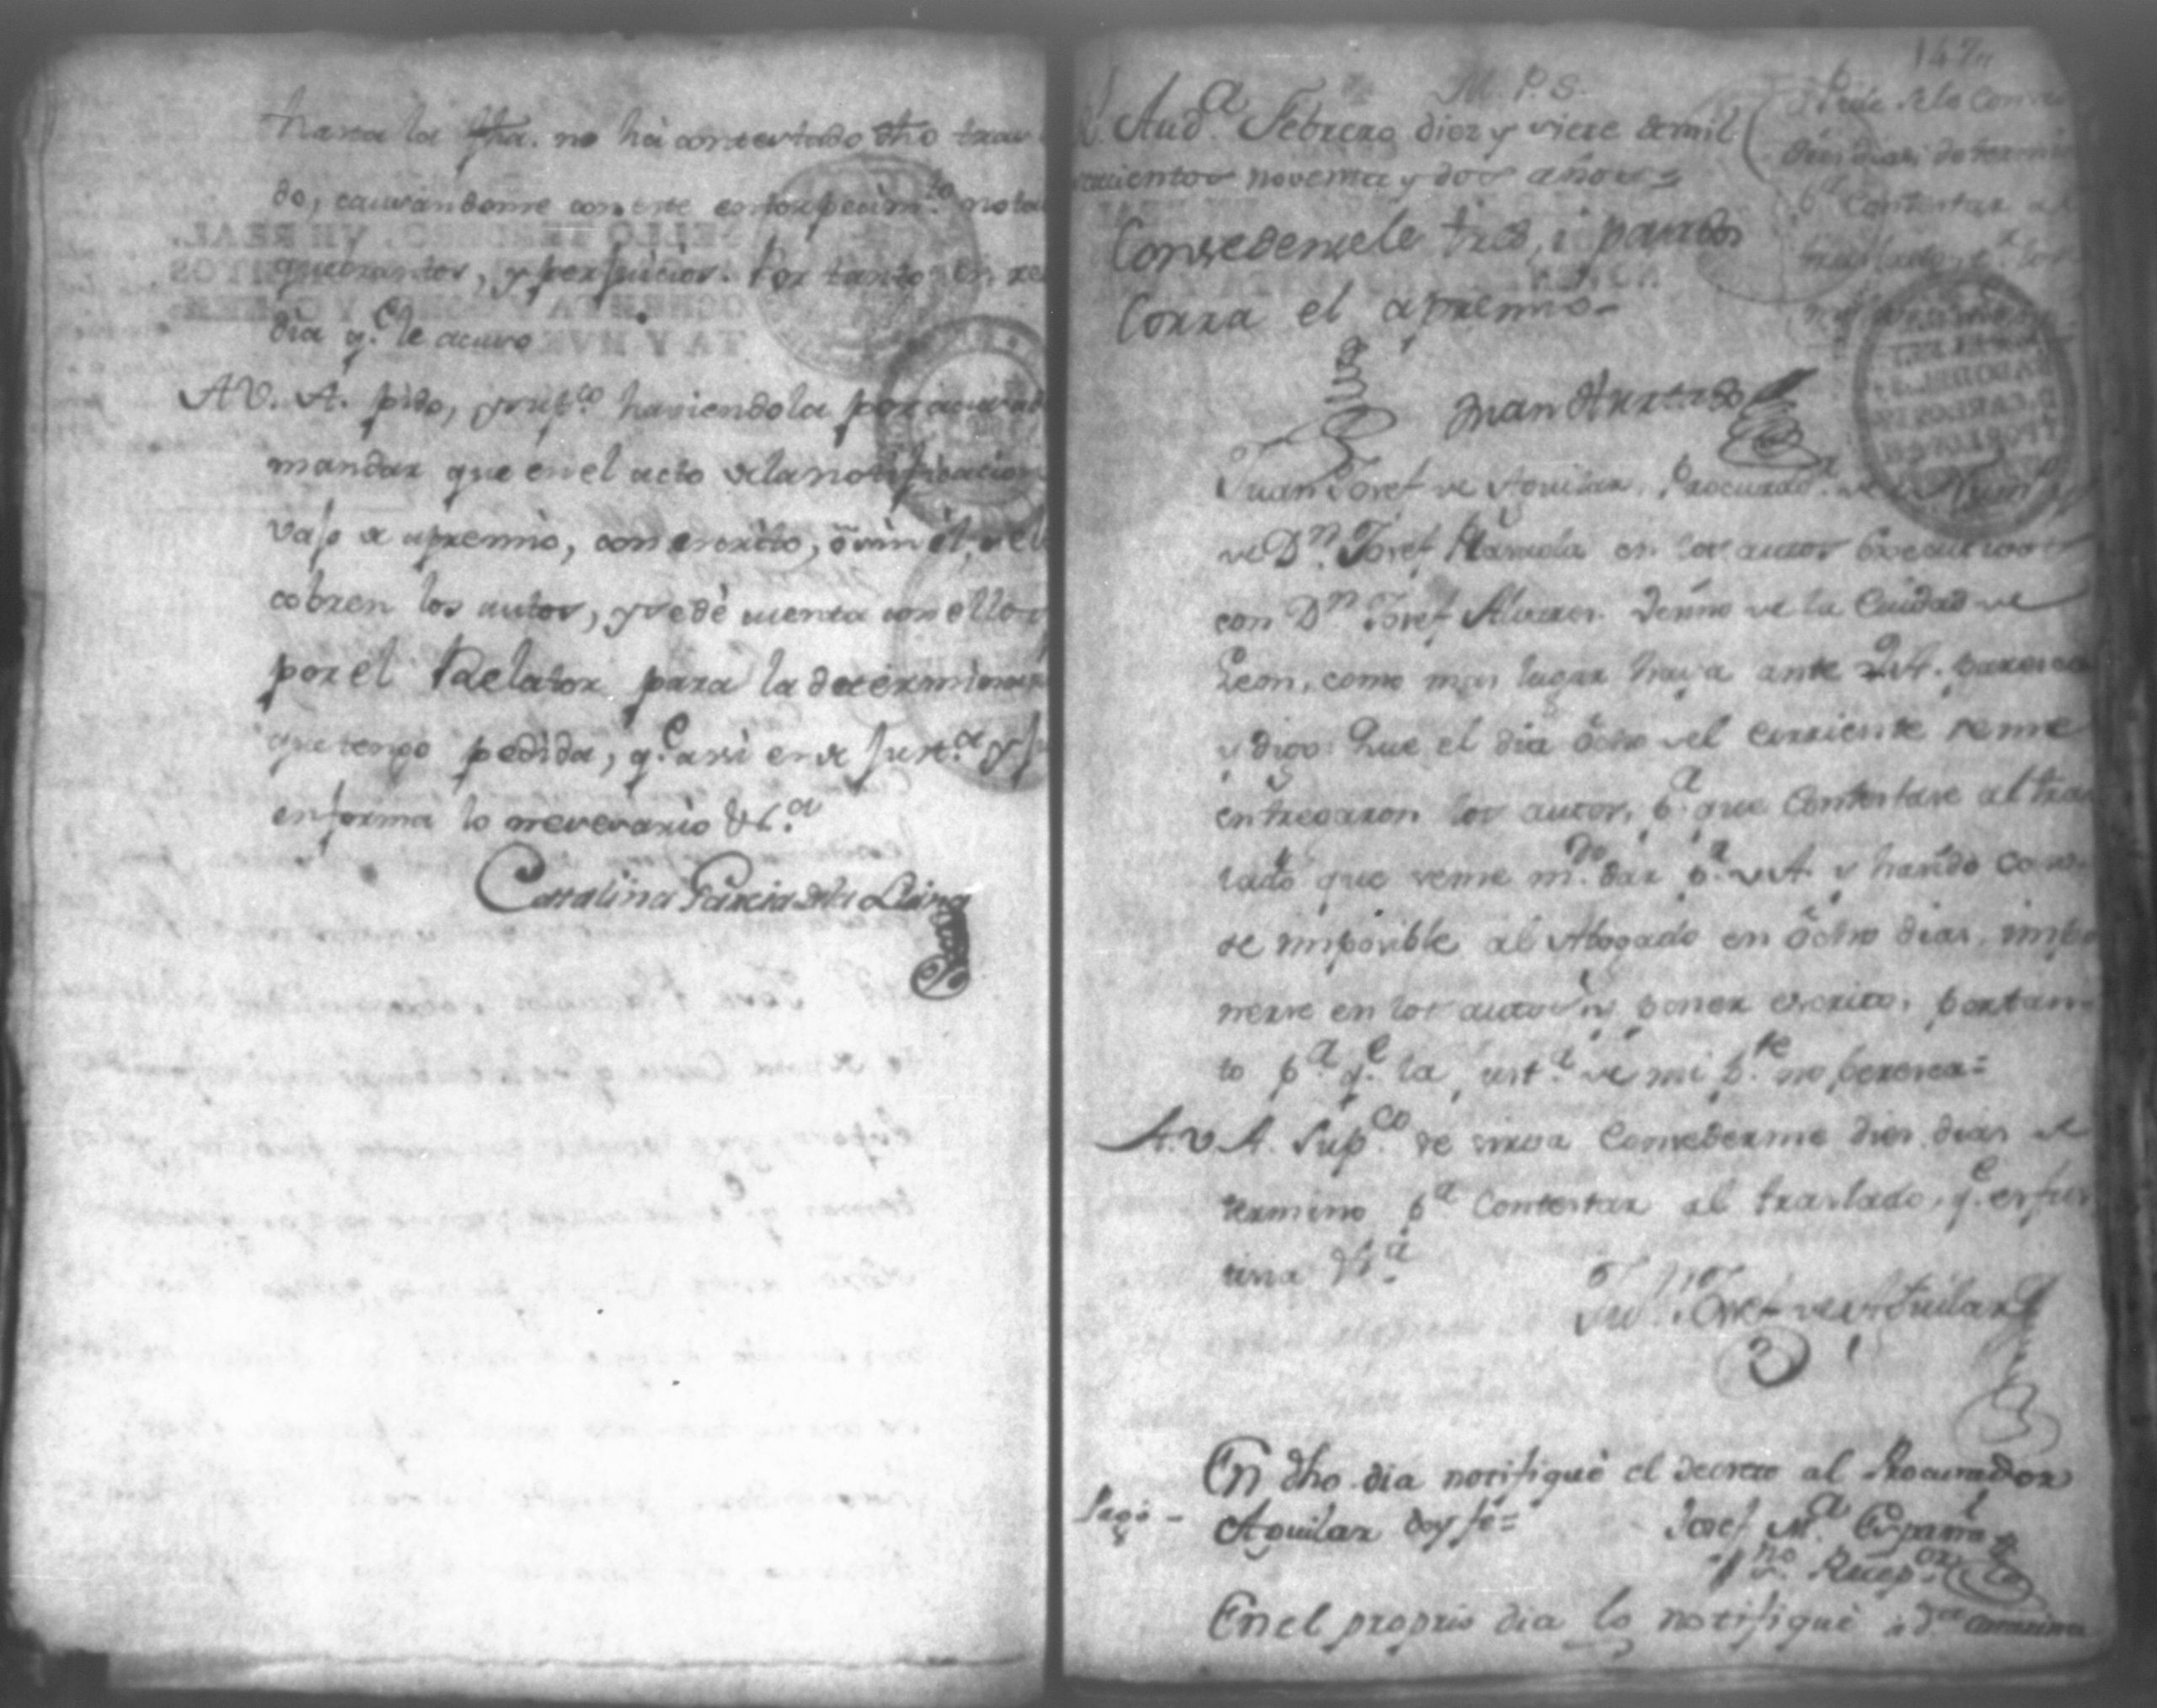 hasta la fha. no há contestado dho tras
do, causandome con este entorpecim.to nota
quebrantos, y perjuicios. Por tanto en re
dia q.e le acuso
A V. A. pido, y sup.co haviendola por acusad
mandar que en el acto de la notificacion
vajo de apremio, con escrito, ó sin él, se
cobren los autos, y se dé cuenta con ellos
por el Relator para la determinaci
que tengo pedida, q.e assi es de just.a y ju
en forma lo nesesario &c.a
Catalina Garcia de la Llana
147
M. P. S.
Aud.a Febrero diez y siete de mil
secientos noventa y dos años =
Consedensele tres, i pasados
Corra el apremio.
Juan Hurtado
Pide se le conse
dies dias de termin
p.a Contestar al
traslado
Juan Josef de Aguilar, Procurad.r de
de D.n Josef Plasaola en los autos Executivos
con D.n Josef Alvares. Vecino de la Ciudad de
Leon, como mas lugar haya ante V.A. paresco
y digo: Que el dia ocho del corriente se me
entregaron los autos, p.a que Contestase al tras
lado que se me m.do dar p.r V.A. y
se imposible al Abogado en ocho dias, impo
nerse en los autos y poner escrito, por tan
to p.a q.e la just.a de mi p.te no peresca =
A. V. A. Sup.co se sirva Consederme dies dias de
termino p.a Contestar al traslado, q.e es jus
ticia &.a
Ju.n Josef de Aguilar
En dho dia notifiqué el decreto al Procurador
Pagó - Aguilar doy fé =
Josef M.a España
S.no Recep.or
En el proprio dia lo notifiqué á D.a Catalina